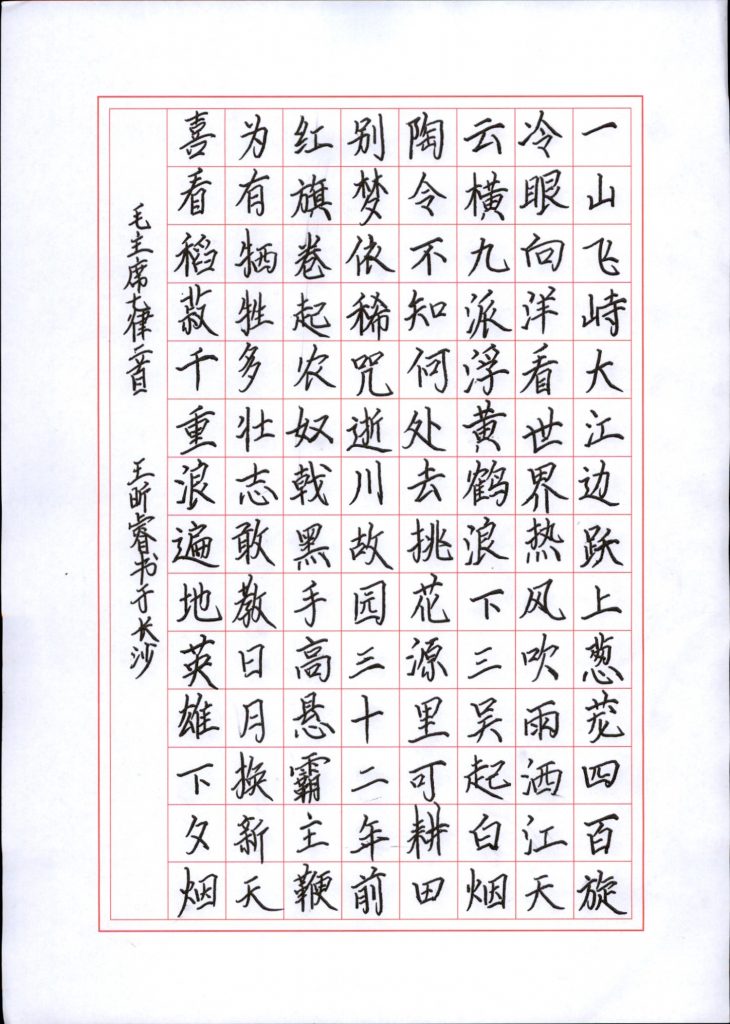 一山飞峙大江边跃上葱茏四百旋
冷眼向洋看世界热风吹雨洒江天
云横九派浮黄鹤浪下三吴起白烟
陶令不知何处去挑花源里可耕田
别梦依稀咒逝川故园三十二年前
红旗卷起农奴戟黑手高悬霸主鞭
为有牺牲多壮志敢教日月换新天
喜看稻菽千重浪遍地英雄下夕烟
毛主席七律二首 王昕睿书于长沙